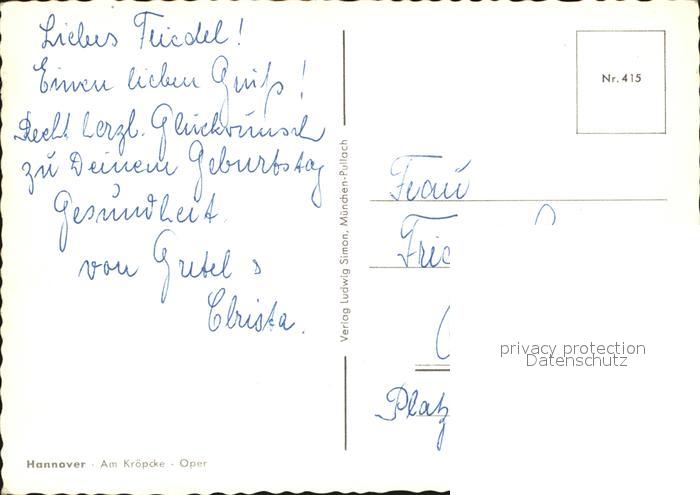 Liebes Friedel!
Einen lieben Gruß!
Recht herzl. Glückwunsch
zu Deinem Geburtstag
Gesundheit.
von Gretel &
Christa.
Hannover · Am Kröpcke · Oper
Verlag Ludwig Simon, München-Pullach
Nr. 415
Frau
Frie
Platz
privacy protection
Datenschutz